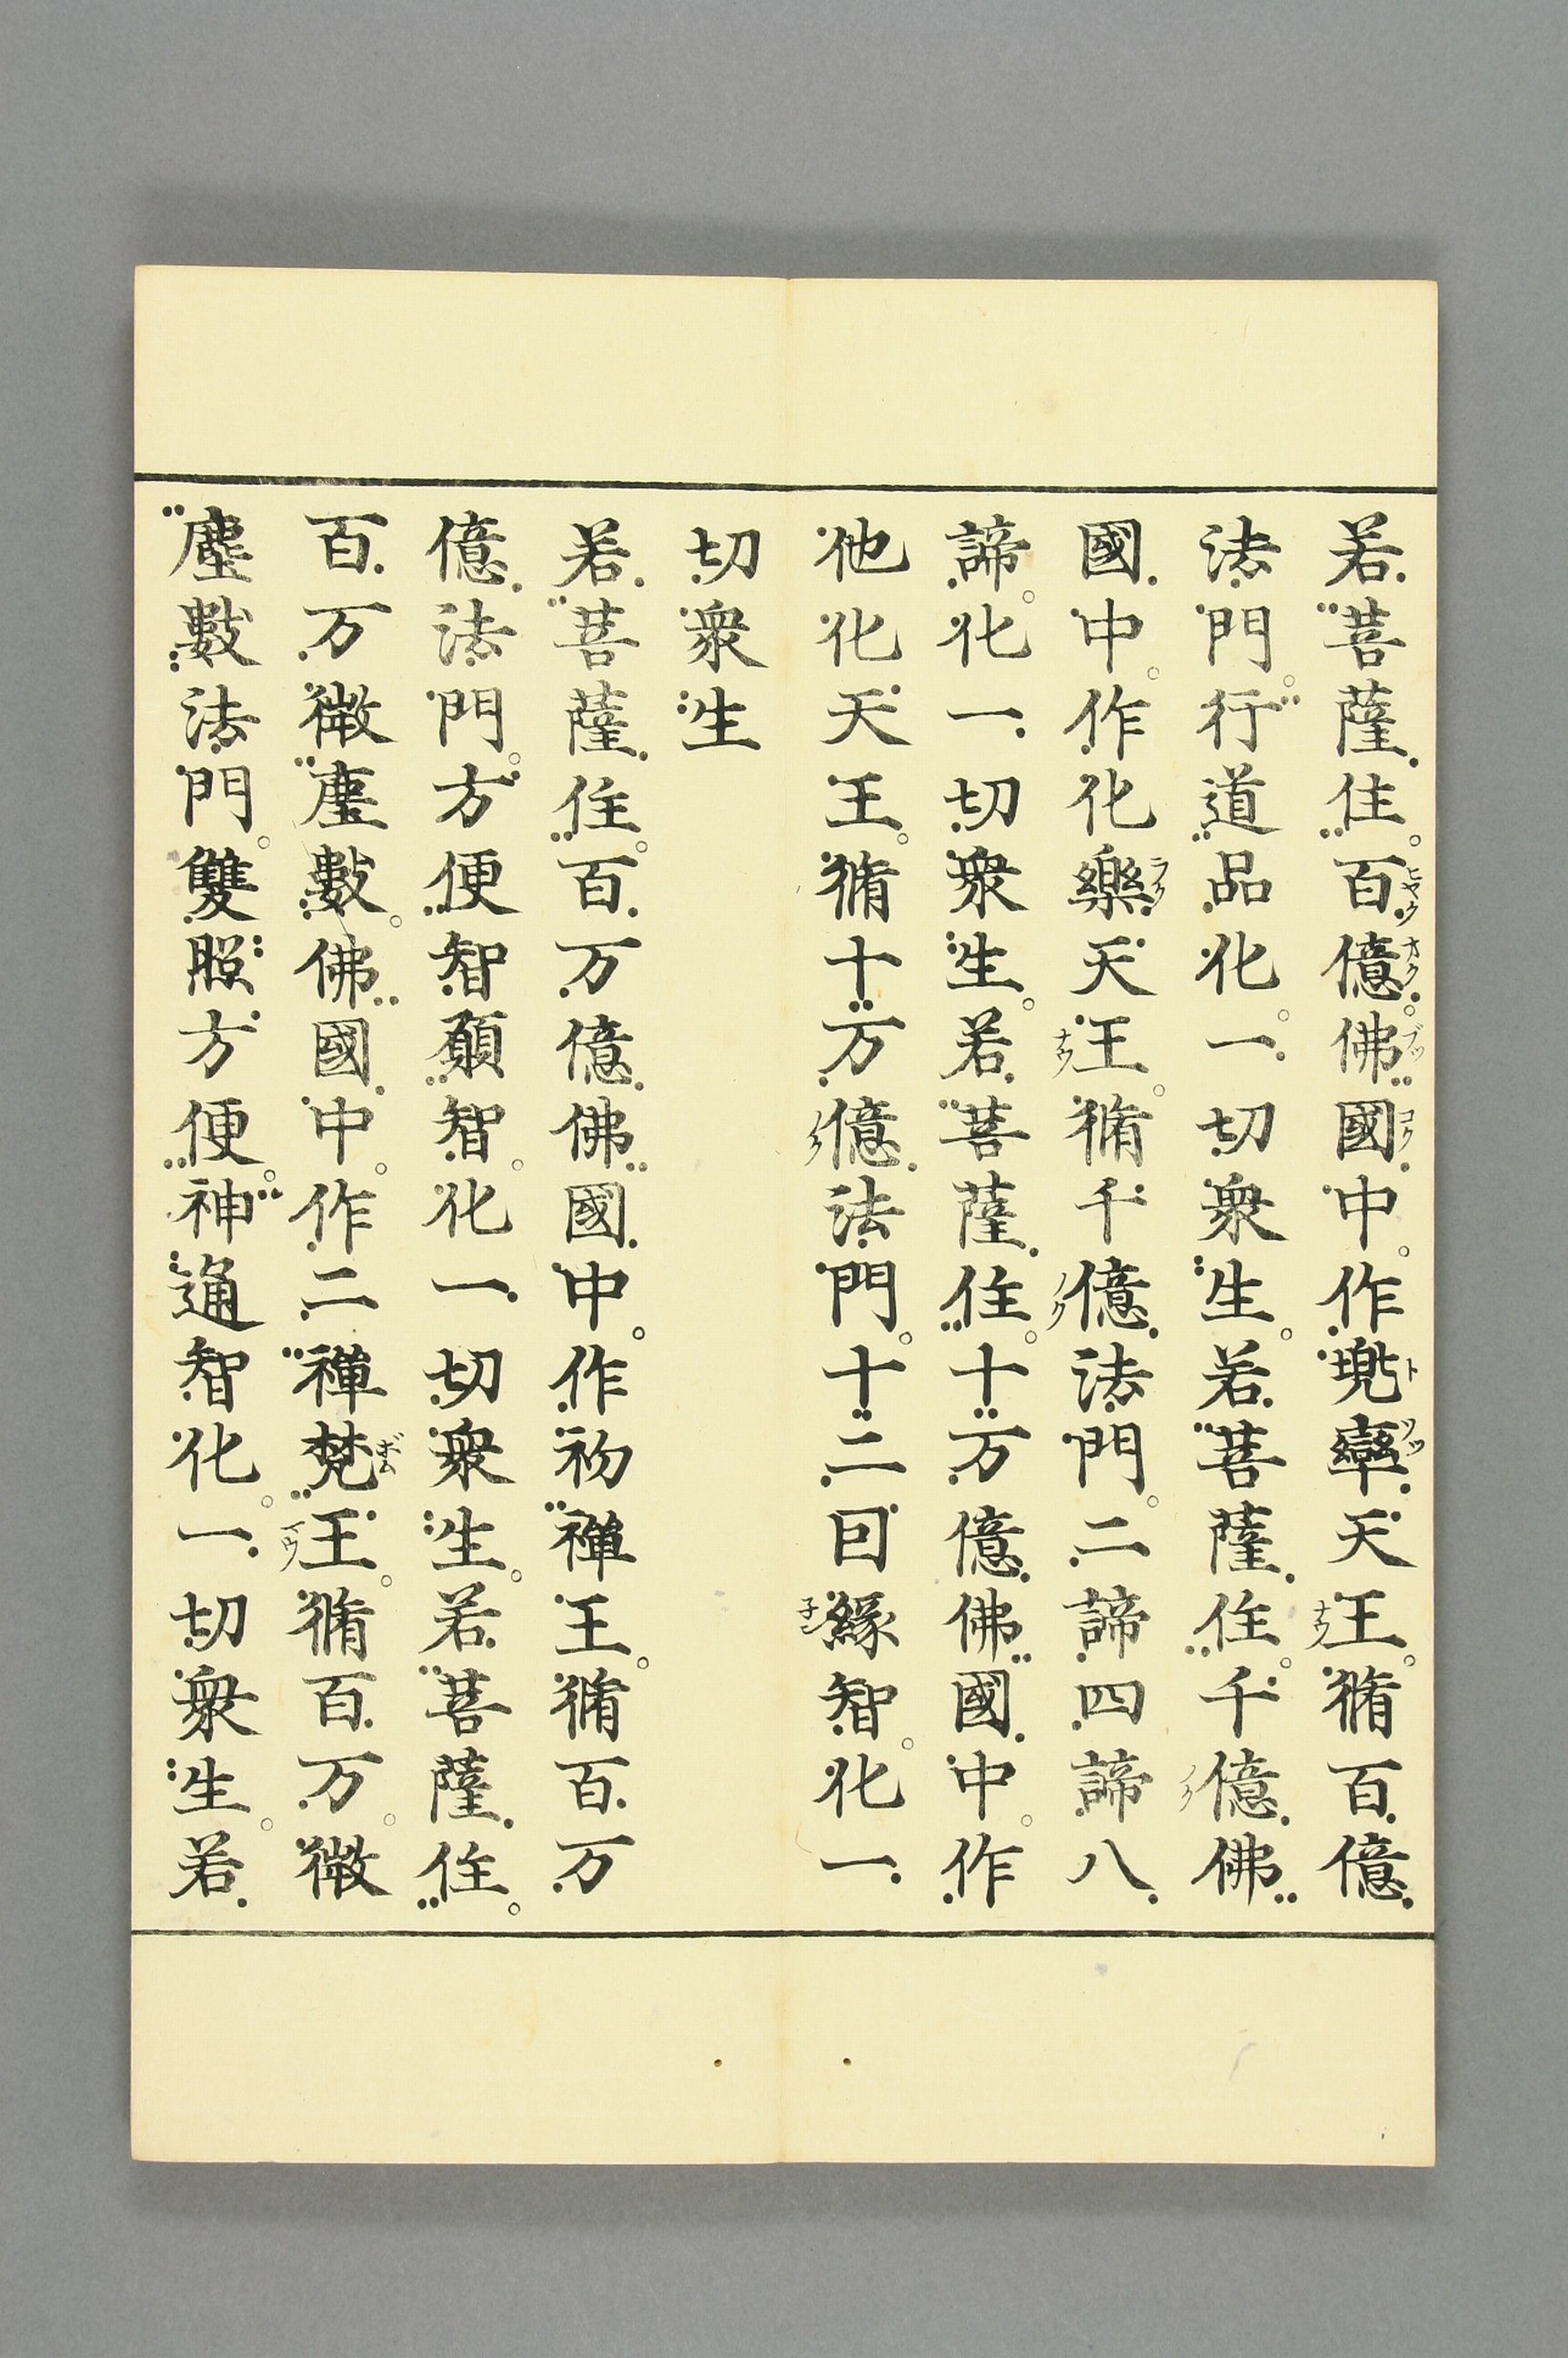 若菩薩住百億佛國中作兜率天王脩百億
法門行道品化一切衆生若菩薩住千億佛
國中作化樂天王脩千億法門二諦四諦八
諦化一切衆生若菩薩住十万億佛國中作
他化天王脩十万億法門十二因緣智化一
切衆生
若菩薩住百万億佛國中作初禪王脩百万
億法門方便智願智化一切衆生若菩薩住
百万微塵數佛國中作二禪梵王脩百万微
塵數法門雙照方便神通智化一切衆生若